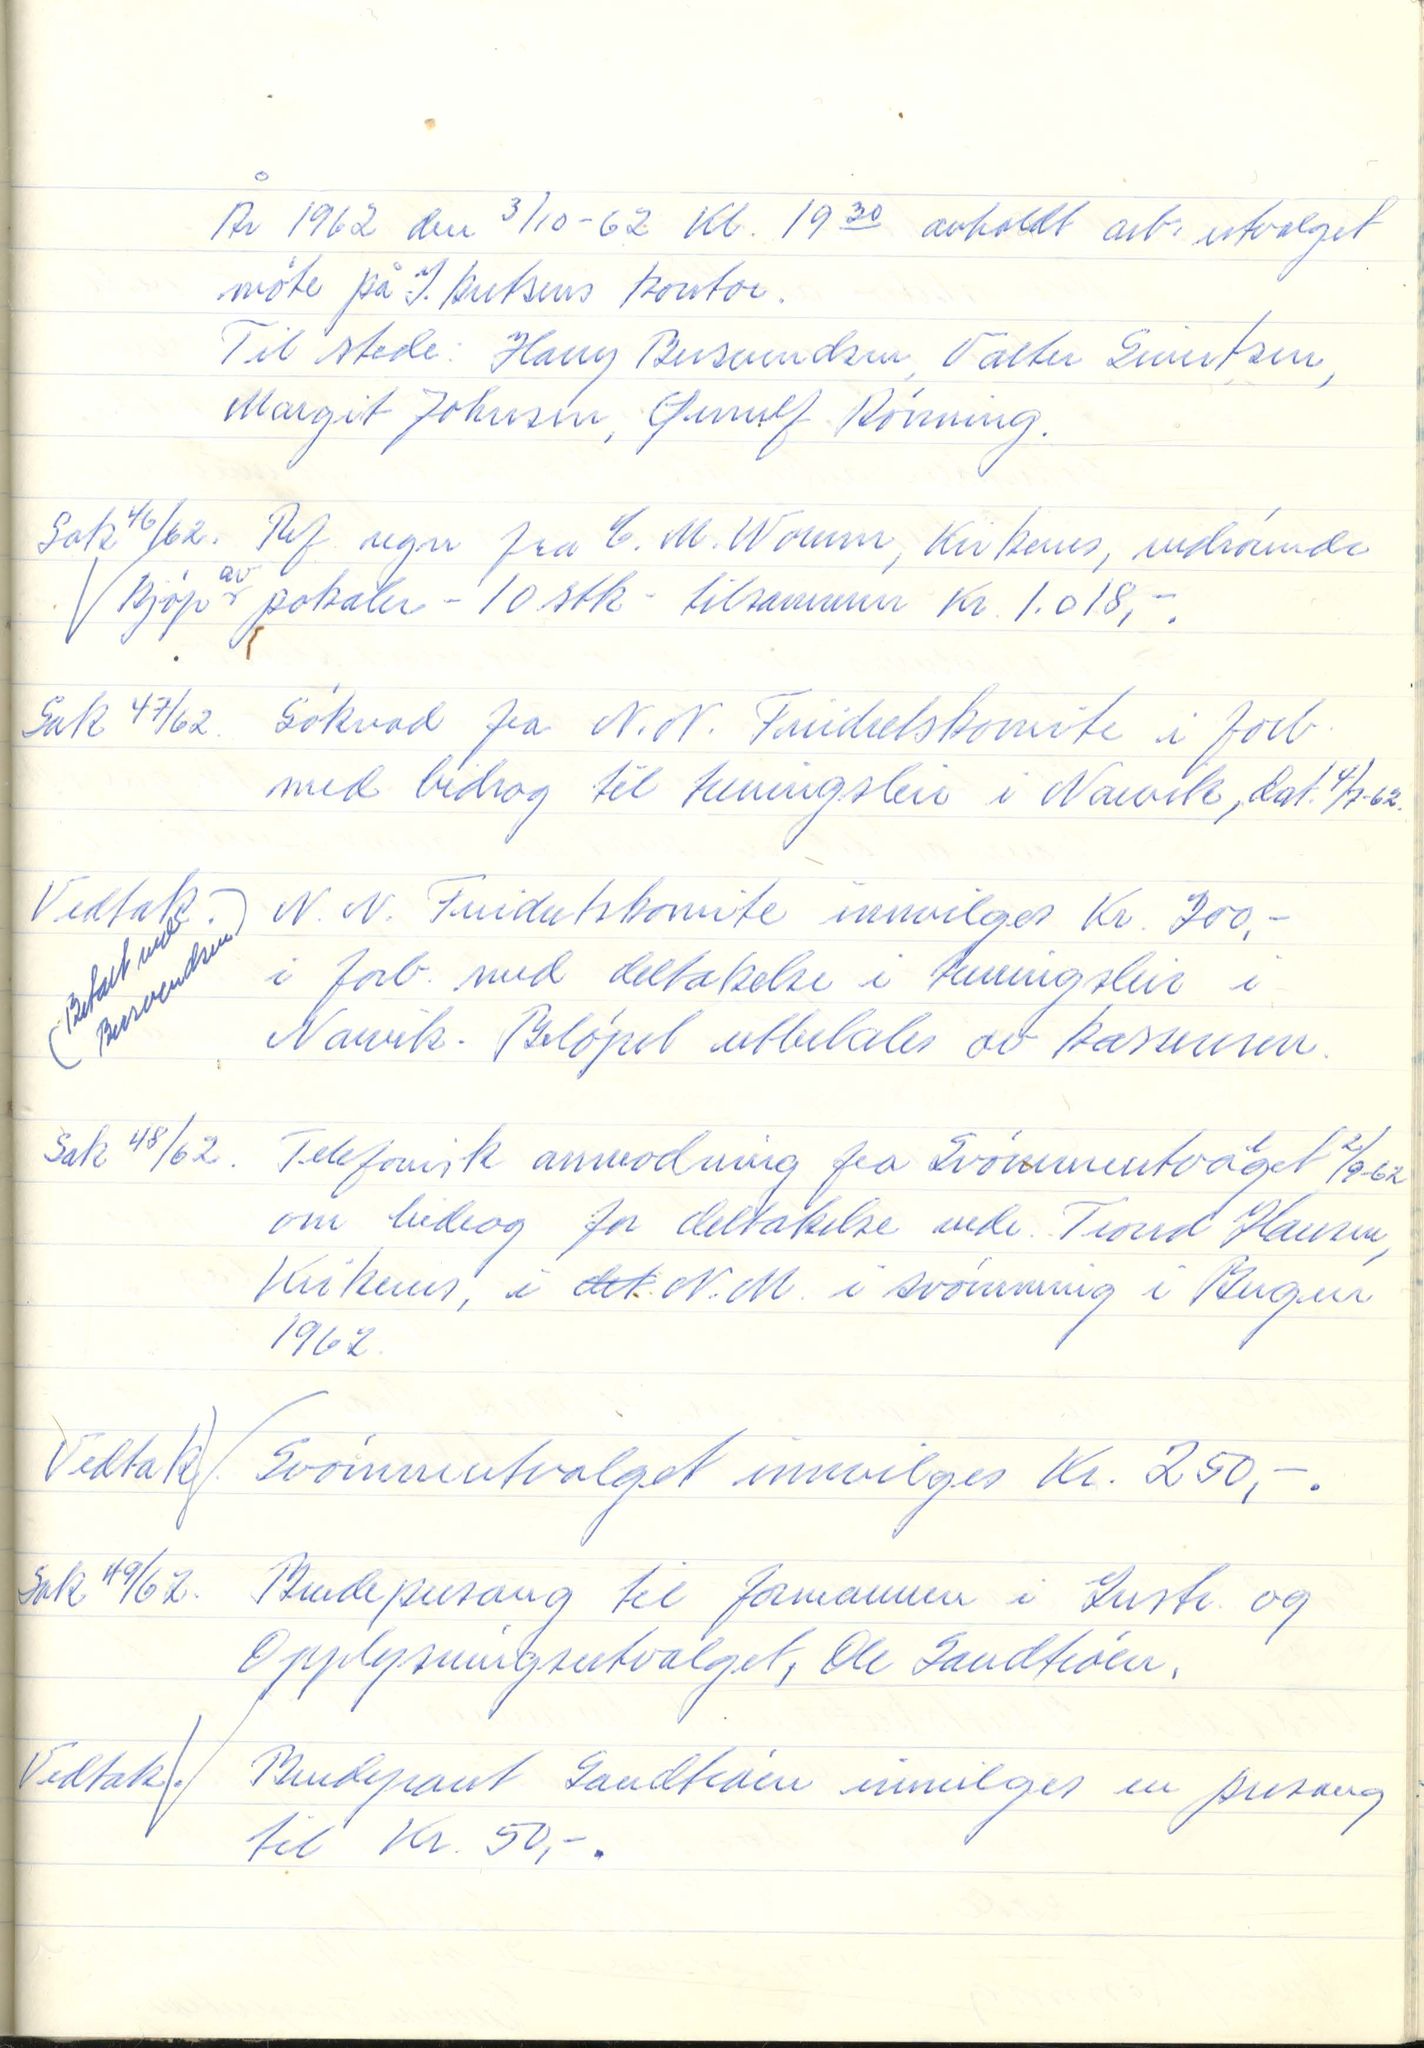 År 1962 den 3/10-62 Kl. 19 30 avholdt arb. utvalget
möte på J. Knutsens kontor.
Til stede: Harry Bersvendsen, Valter Sivertsen,
Margit Johnsen, Gunulf Rönning.
Sak 46/62. Ref regn fra C. M. Worum, Kirkenes, vedrörende
kjöp av pokaler - 10 stk - tilsammen Kr. 1.018,-.
Sak 47/62. Söknad fra N.N. Friidretskomite i forb.
med bidrag til treningsleir i Narvik, dat. 4/7-62.
Vedtak. N. N. Friidretskomite innvilges Kr. 300,-
(Betalt ved Bersvendsen)
i forb. med deltakelse i treningsleir i
Narvik. Belöpet utbetales av kasseren.
Sak 48/62. Telefonisk anmodning fra Svömmeutvalget 2/9-62
om bidrag for deltakelse ved. Trond Hansen,
Kirkenes, i det N.M. i svömming i Bergen
1962.
Vedtak. Svömmeutvalget innvilges Kr. 250,-.
Sak 49/62. Brudepresang til formannen i Instr. og
Opplysningsutvalget, Ole Sandtröen.
Vedtak. Brudeparet Sandtröen innvilges en presang
til Kr. 50,-.